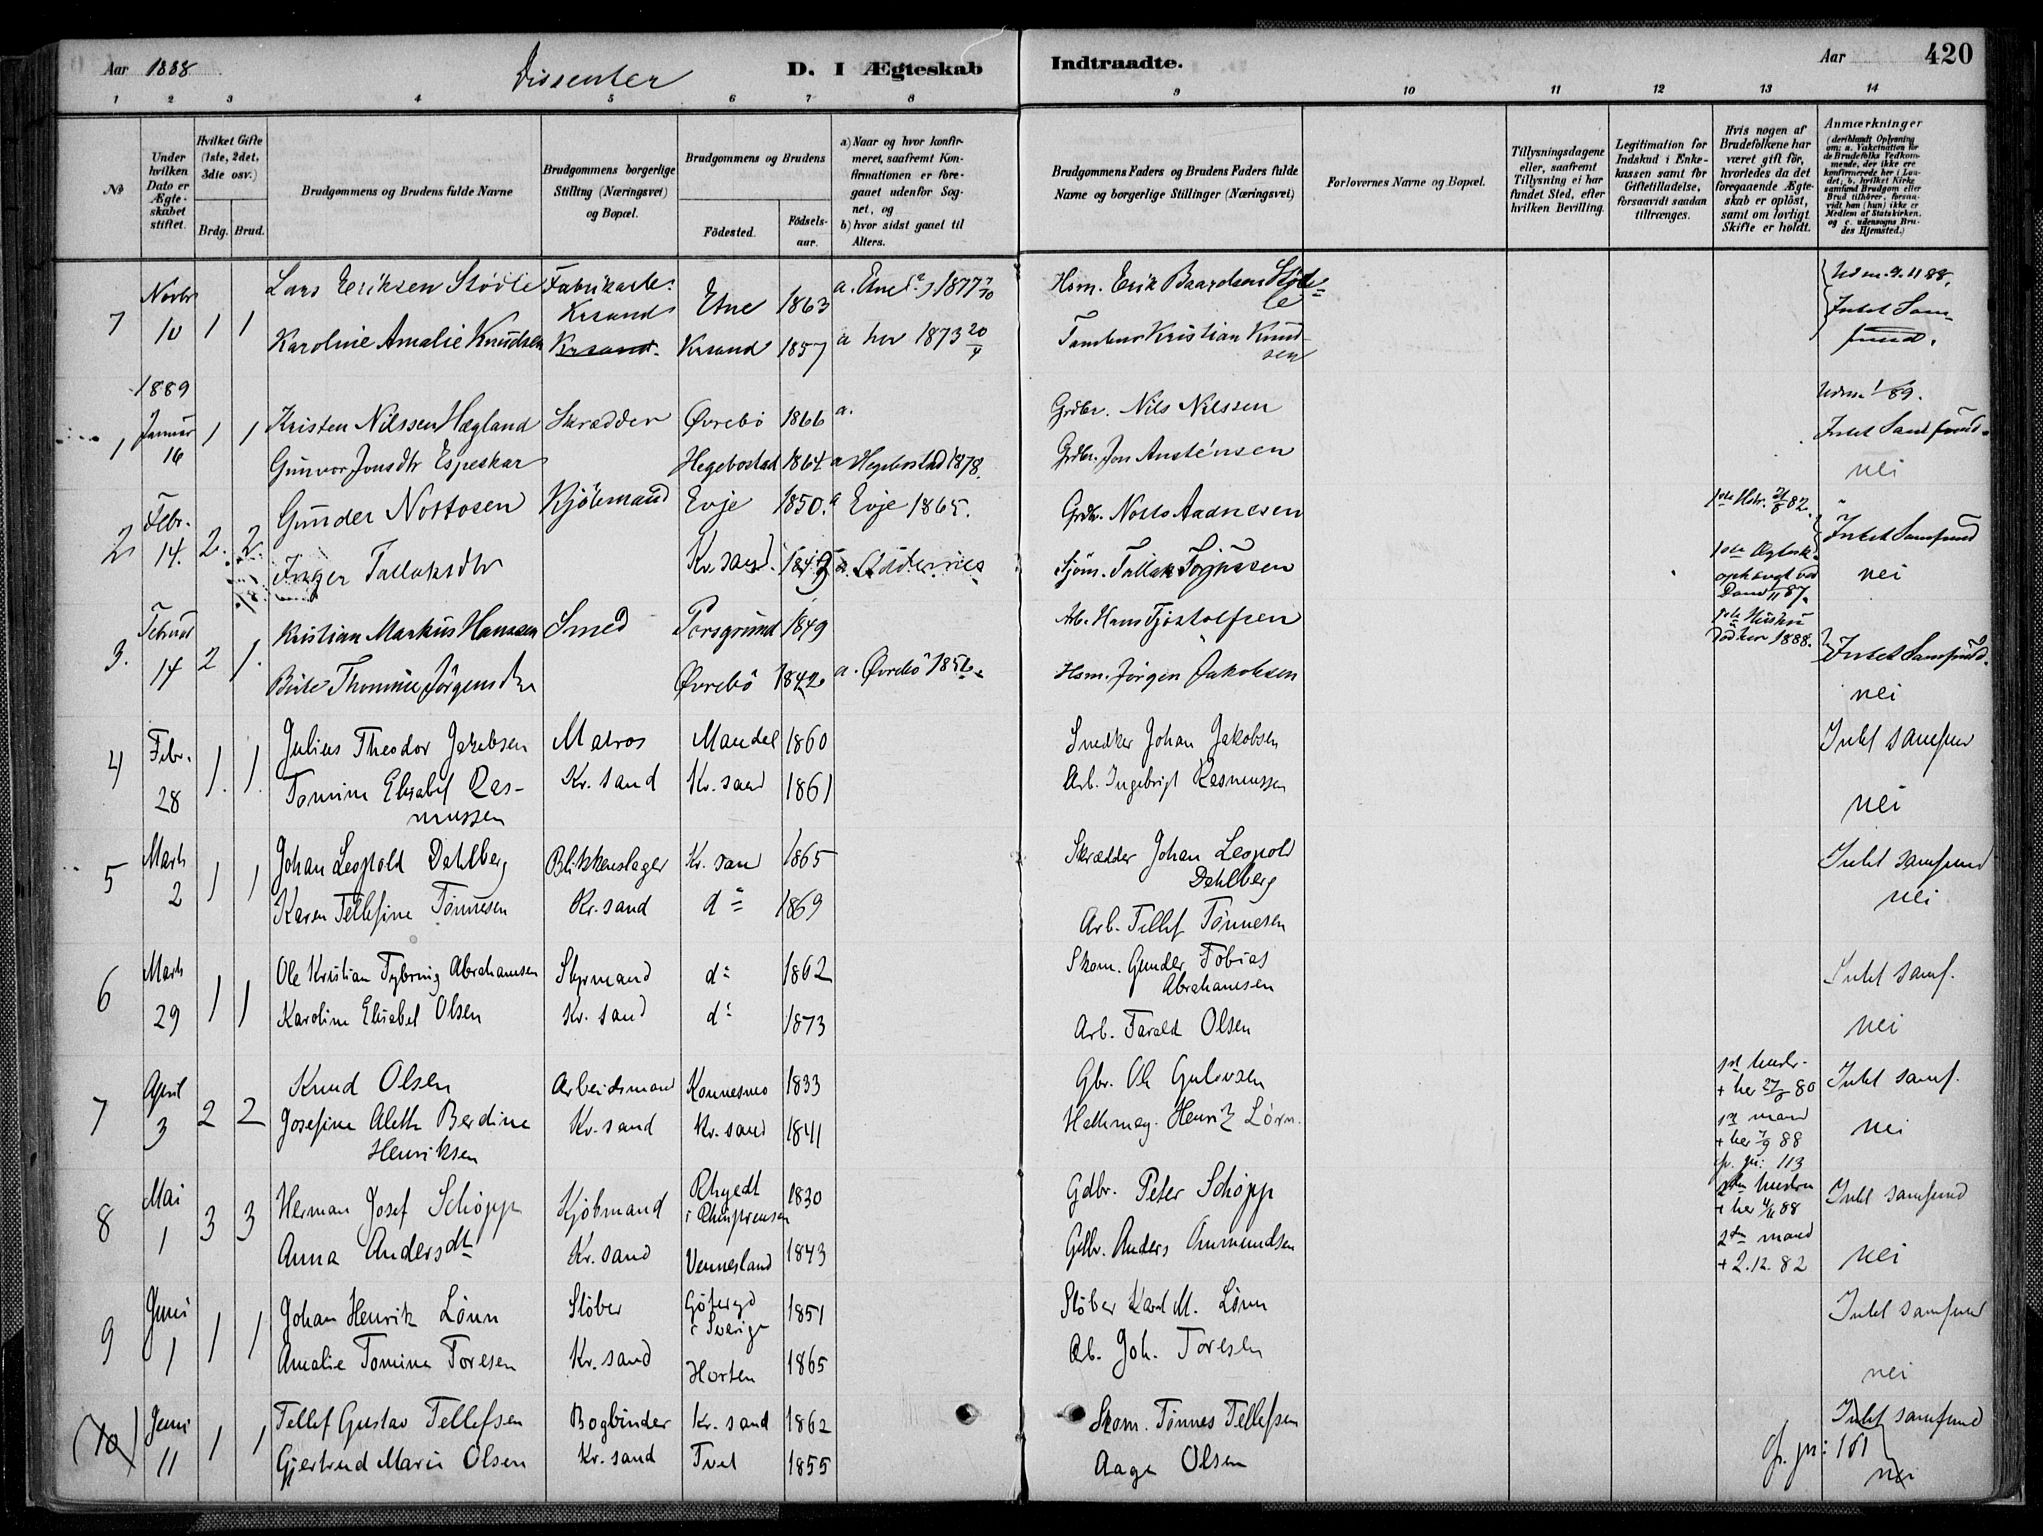 Aar 1888
Dissenter
D. I Ægteskab
Indtraadte.
Aar
420
1 2 3 4 5 6 7 8 9 10 11 12 13 14
No
Under hvilken Dato er Ægteskabet stiftet.
Hvilket Gifte (1ste, 2det, 3die osv.)
Brdg. Brud.
Brudgommens og Brudens fulde Navne
Brudgommens borgerlige Stilling (Næringsvei) og Bopæl.
Brudgommens og Brudens
Födested.
Födsels-aar.
a) Naar og hvor konfirmeret, saafremt Konfirmationen er foregaaet udenfor Sognet, og
b) hvor sidst gaaet til Alters.
Brudgommens Faders og Brudens Faders fulde Navne og borgerlige Stillinger (Næringsvei)
Forlovernes Navne og Bopæl.
Tillysningsdagene eller, saafremt Tillysning ei har fundet Sted, efter hvilken Bevilling.
Legitimation for Indskud i Enkekassen samt for Giftetilladelse, forsaavidt saadan tiltrænges.
Hvis nogen af Brudefolkene har været gift för, hvorledes da det foregaaende Ægteskab er oplöst, samt om lovligt Skifte er holdt.
Anmærkninger
(deriblandt Oplysning om: a. Vakcination for de Brudefolks Vedkommende, der ikke ere konfirmerede her i Landet, b. hvilket Kirkesamfund Brudgom eller Brud tilhörer, forsaavidt han (hun) ikke er Medlem af Statskirken, og c. udensogns Brudes Hjemsted.)
7 Novbr 10 1 1 Lars Eriksen Störle Fabrikarb. Krsand Etne 1863 a. Etne 1877 7/10 Hsm. Erik Baardsen Udm. 9.11 88.
Karoline Amalie Knudsen Krsand. Krsand 1857 a her 1873 20/4 Tambur Kristian Knudsen Intet Samfund.
1889
1 Januar 16 1 1 Kristen Nilssen Hægland Skrædder Øvrebö 1866 a. Grdbr. Nils Nilssen Udm 1/89. Intet Samfund.
Gunvor Jonsdtr Espeskar Hegebostad 1864. a Hegebostad 1878. Grdbr. Jon Austénsen nei
2 Febr. 14. 2. 2. Gunder Nottosen Kjöbmand Evje 1850. a Evje 1865. Grdbr. Notto Aadnesen 1ste Hstr. 21/8 82. Intet Samfund
Inger Tallaksdtr Kr. sand. 1849 a. Oddernes Sjöm. Tallak 1ste Ægtesk. ophævet ved Dom 11 87. nei
3. Februar 14 2 1. Kristian Markus Hanssen Smed Porsgrund 1849 Ab. Hans Tjöstolfsen 1ste Hustru död her 1888. Intet Samfund.
Birte Thomine Jörgensdtr Øvrebö 1842. a. Øvrebö 1856. Hsm. Jörgen Jakobsen nei
4 Febr. 28 1. 1. Julius Theodor Jakobsen Matros Mandal 1860 Snedker Johan Jakobsen Intet samfun
Tomine Elisabet Rasmussen Kr. sand Kr. sand 1861 Arb. Ingebrigt Rasmussen nei
5 Marts 2 1 1 Johan Leopold Dahlberg Blikkenslager Kr. sand 1865 Skrædder Johan Leopold Dahlberg Intet samfund
Karen Tellefine Tönnesen Kr. sand do 1869 Arb. Tellef Tönnesen nei
6 Marts 29 1 1 Ole Kristian Tybring Abrahamsen Styrmand do 1862 Skom. Gunder Tobias Abrahamsen Intet samf.
Karoline Elisabet Olsen Kr. sand do 1873 Arb. Tarald Olsen nei
7 April 3 2 2 Knud Olsen Arbeidsmand Konnesmo 1833 Gbr. Ole Gulovsen 1st hustr. + her 27/8 80 Intet samf.
Josefine Aleth Berdine Henriksen Kr. sand Kr. sand 1841 Hattemag. Henrik Lörn. 1st mand + her 7/9 88 cfr. pr: 113 nei
8 Mai 1 3 3 Herman Josef Schöpp Kjöbmand Rheydt i Rhinpreusen 1830 Gdbr. Peter Schöpp 2den hustru + her 4/6 88 Intet samfund
Anna Andersdtr Kr. sand Vennesland 1843 Gdbr. Anders Ammundsen 2den mand + 2.12.82 nei
9 Juni 1 1 1 Johan Henrik Lönn Stöber Göteryd i Sverige 1851 Stöber Karl M. Lönn Intet samfund
Amalie Tomine Toresen Kr. sand Horten 1865 Ab. Joh. Toresen nei
(10) Juni 11 1 1 Tellef Gustav Tellefsen Bogbinder Kr. sand 1862 Skom. Tönnes Tellefsen Intet samfund
Gjertrud Marie Olsen Kr. sand Tvet 1855 Aage Olsen cfr. pr: 161 nei